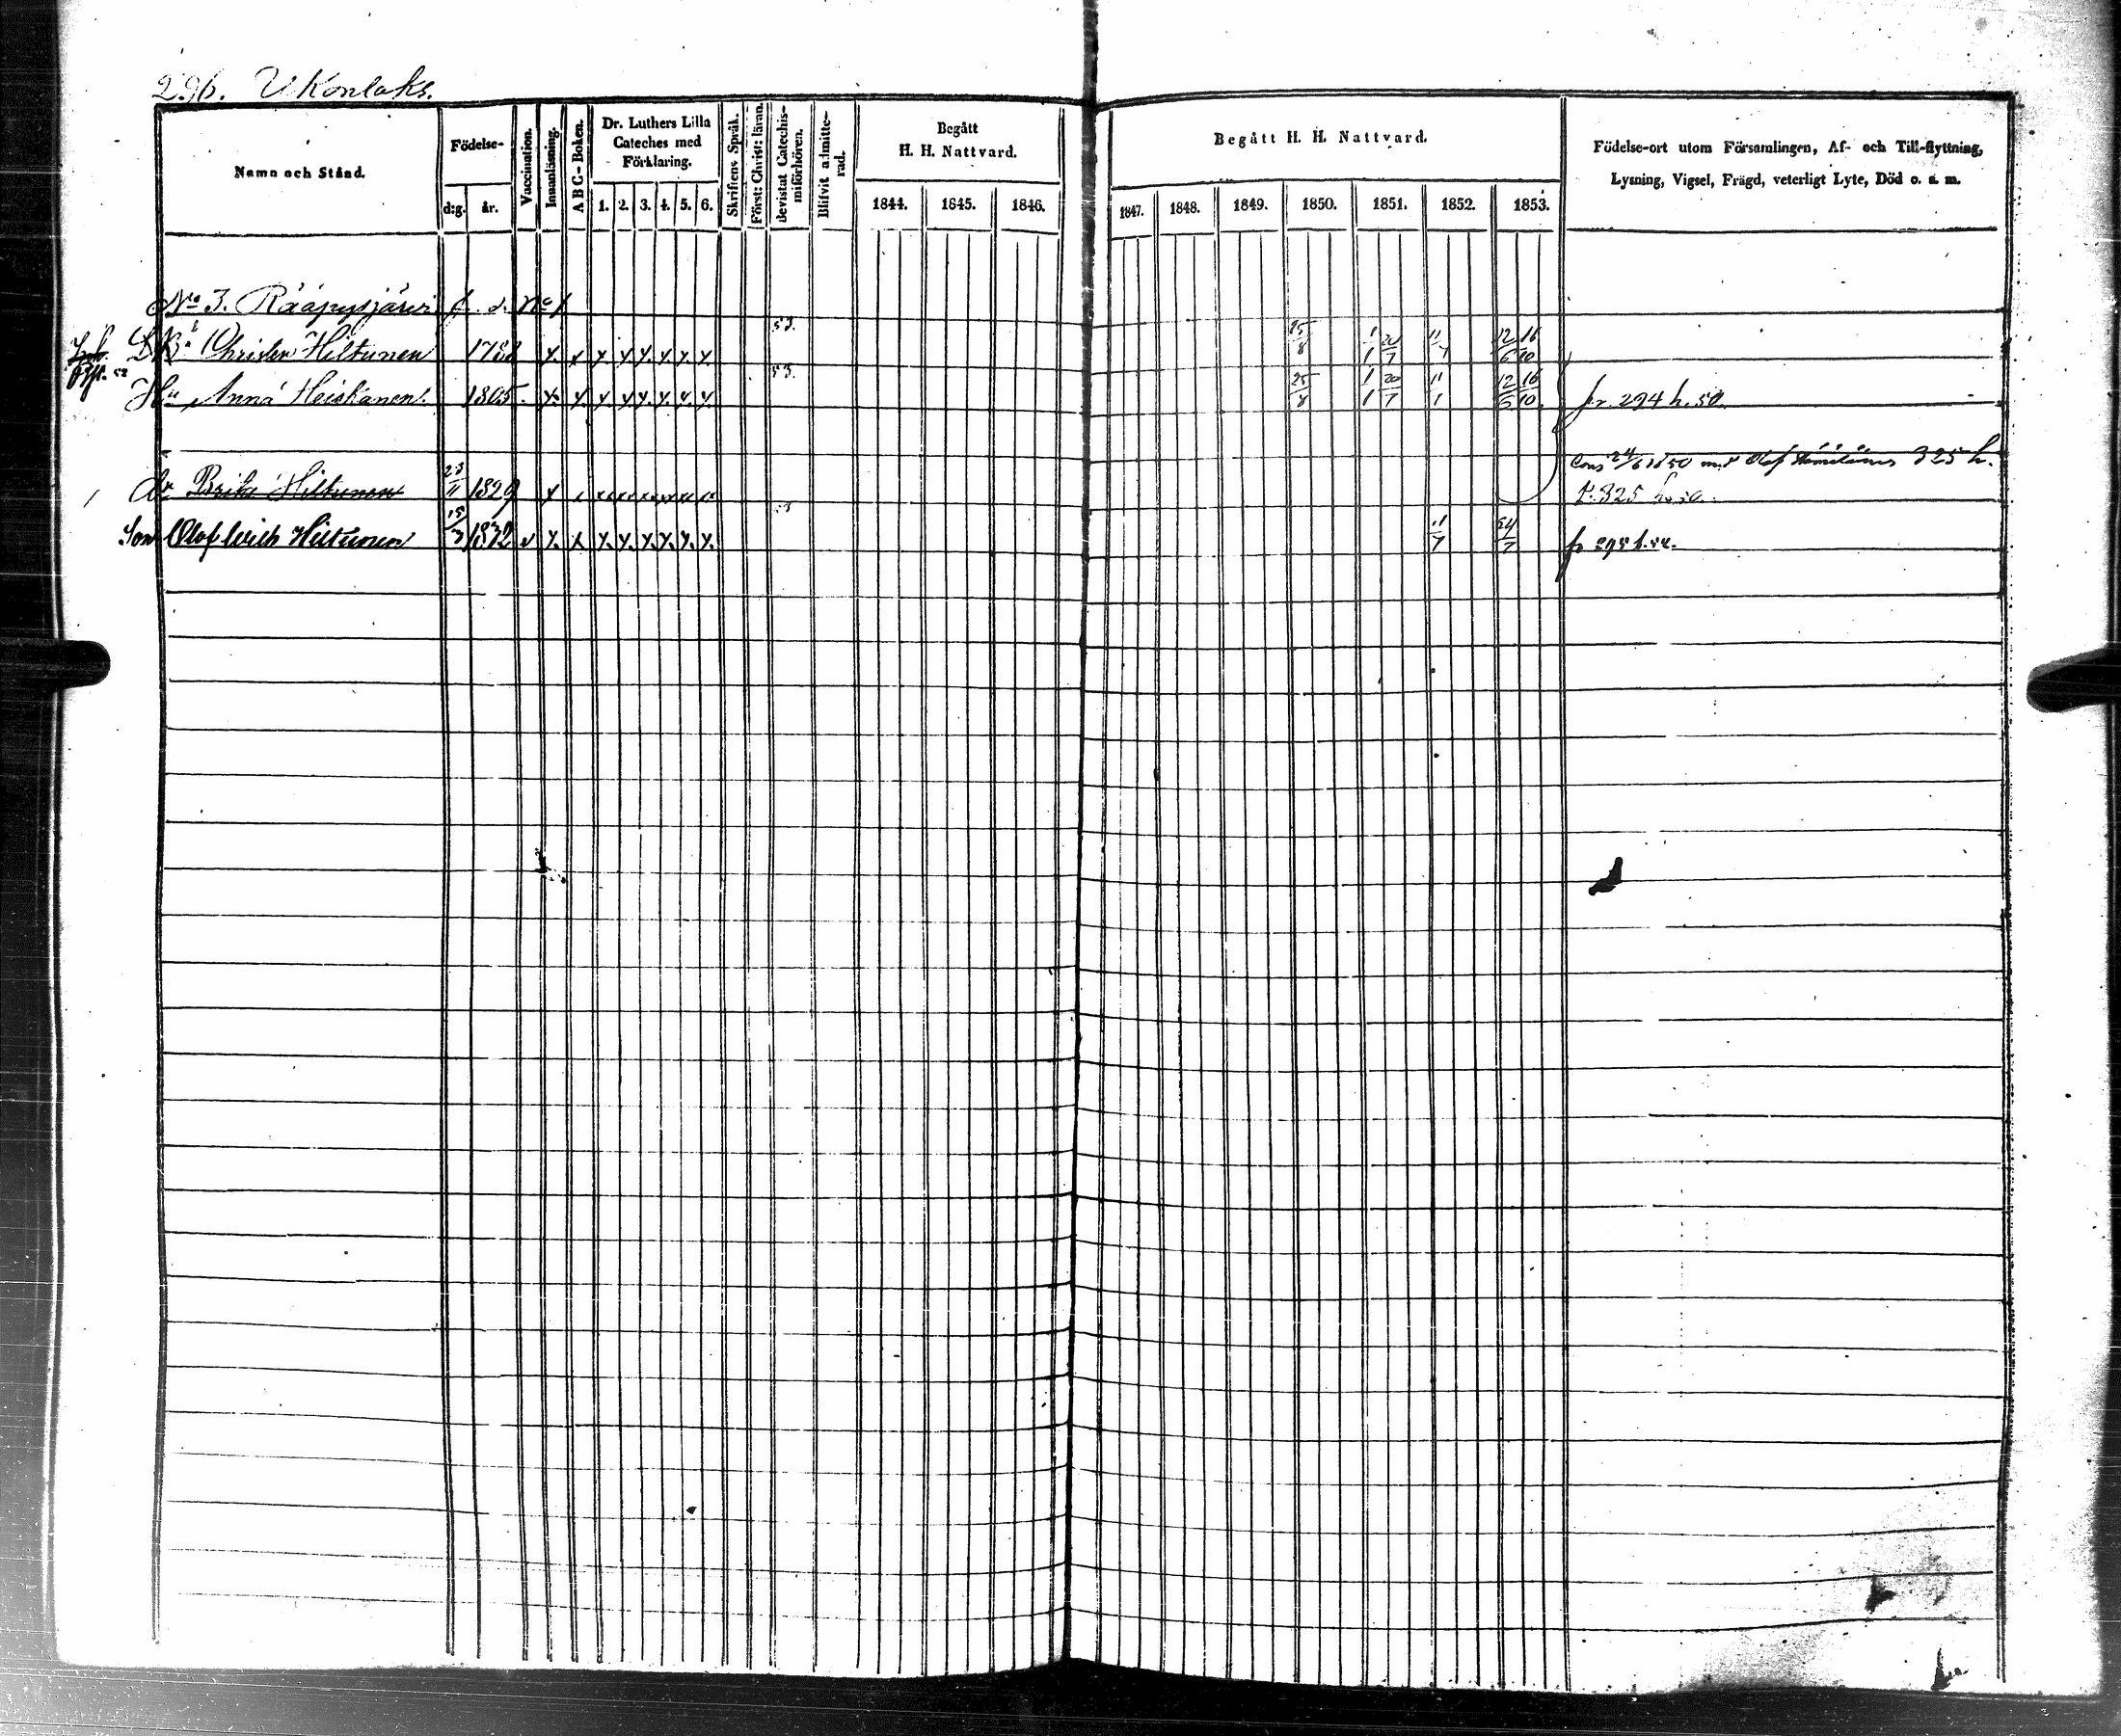 296. UKonlaks.
Namn och Stånd.
Födelse-
d:g. år.
Vaccination.
Innanläsning.
A B C-Boken.
Dr. Luthers Lilla
Cateches med
Förklaring.
1. 2. 3. 4. 5. 6.
Skriftens Språk.
Först: Christ: läran.
Bevistat Catechis-
miförhören.
Blifvit admitte-
rad.
Begått
H. H. Nattvard.
1844. 1845. 1846.
Begått H. H. Nattvard.
1847. 1848. 1849. 1850. 1851. 1852. 1853.
Födelse-ort utom Församlingen, Af- och Till-flyttning,
Lysning, Vigsel, Frägd, veterligt Lyte, Död o. s. m.
No 3. Rääpysjärvi No 1
Christer Hiltunen 1788 x x x x x x x x 53. 25/8 1/1 20/7 12/6 16/10
Hu Anna Heiskanen 1805 x x x x x x x x 53. 25/8 1/1 20/7 11/1 12/6 16/10 fr. 294 h. 50
24/6 1850 Olof 325 h.
dr Brita Hiltunen 23/11 1829 x x x x x x x t. 325 h. 50.
Son Olof Hiltunen 15/3 1832 v x x x x x x x x 11/7 24/7 fr 295 h.